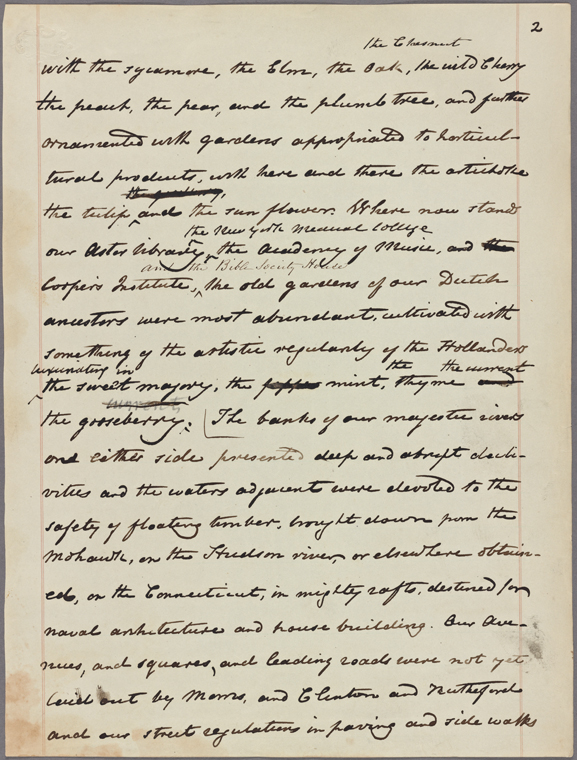 2
the Chesnut
with the sycamore, the Elm, the Oak, the wild Cherry
the peach, the pear, and the plumb tree, and further
ornamented with gardens appropriated to horticul-
tural products, with here and there the artichoke
the tulip and the sun flower. Where now stand
the New York Medical College
our Astor library, the Academy of Music, and the
and the Bible Society House
Coopers Institute, the old gardens of our Dutch
ancestors were most abundant, cultivated with
something of the artistic regularity of the Hollanders
luxuriating in the the currant
the sweet majory, the mint, thyme and
currents
the gooseberry. The banks of our majestic rivers
one either side presented deep and abrupt decli-
vities and the waters adjacent were devoted to the
safety of floating timber, brought down from the
Mohawk, on the Hudson river, or elsewhere obtain-
ed, on the Connecticut, in mighty rafts, destined for
naval architecture and house building. Our Ave-
nues, and squares, and leading roads were not yet
laid out by Morris, and Clinton and Rutherford
and our street regulations in paving and side walks